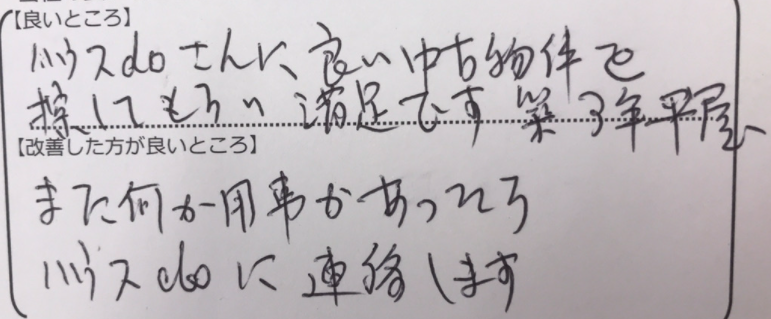 【良いところ】
ハウスdoさんに、良い中古物件を
探してもらい満足です 築3年平屋、
【改善した方が良いところ】
また何か用事があったら
ハウスdoに連絡します